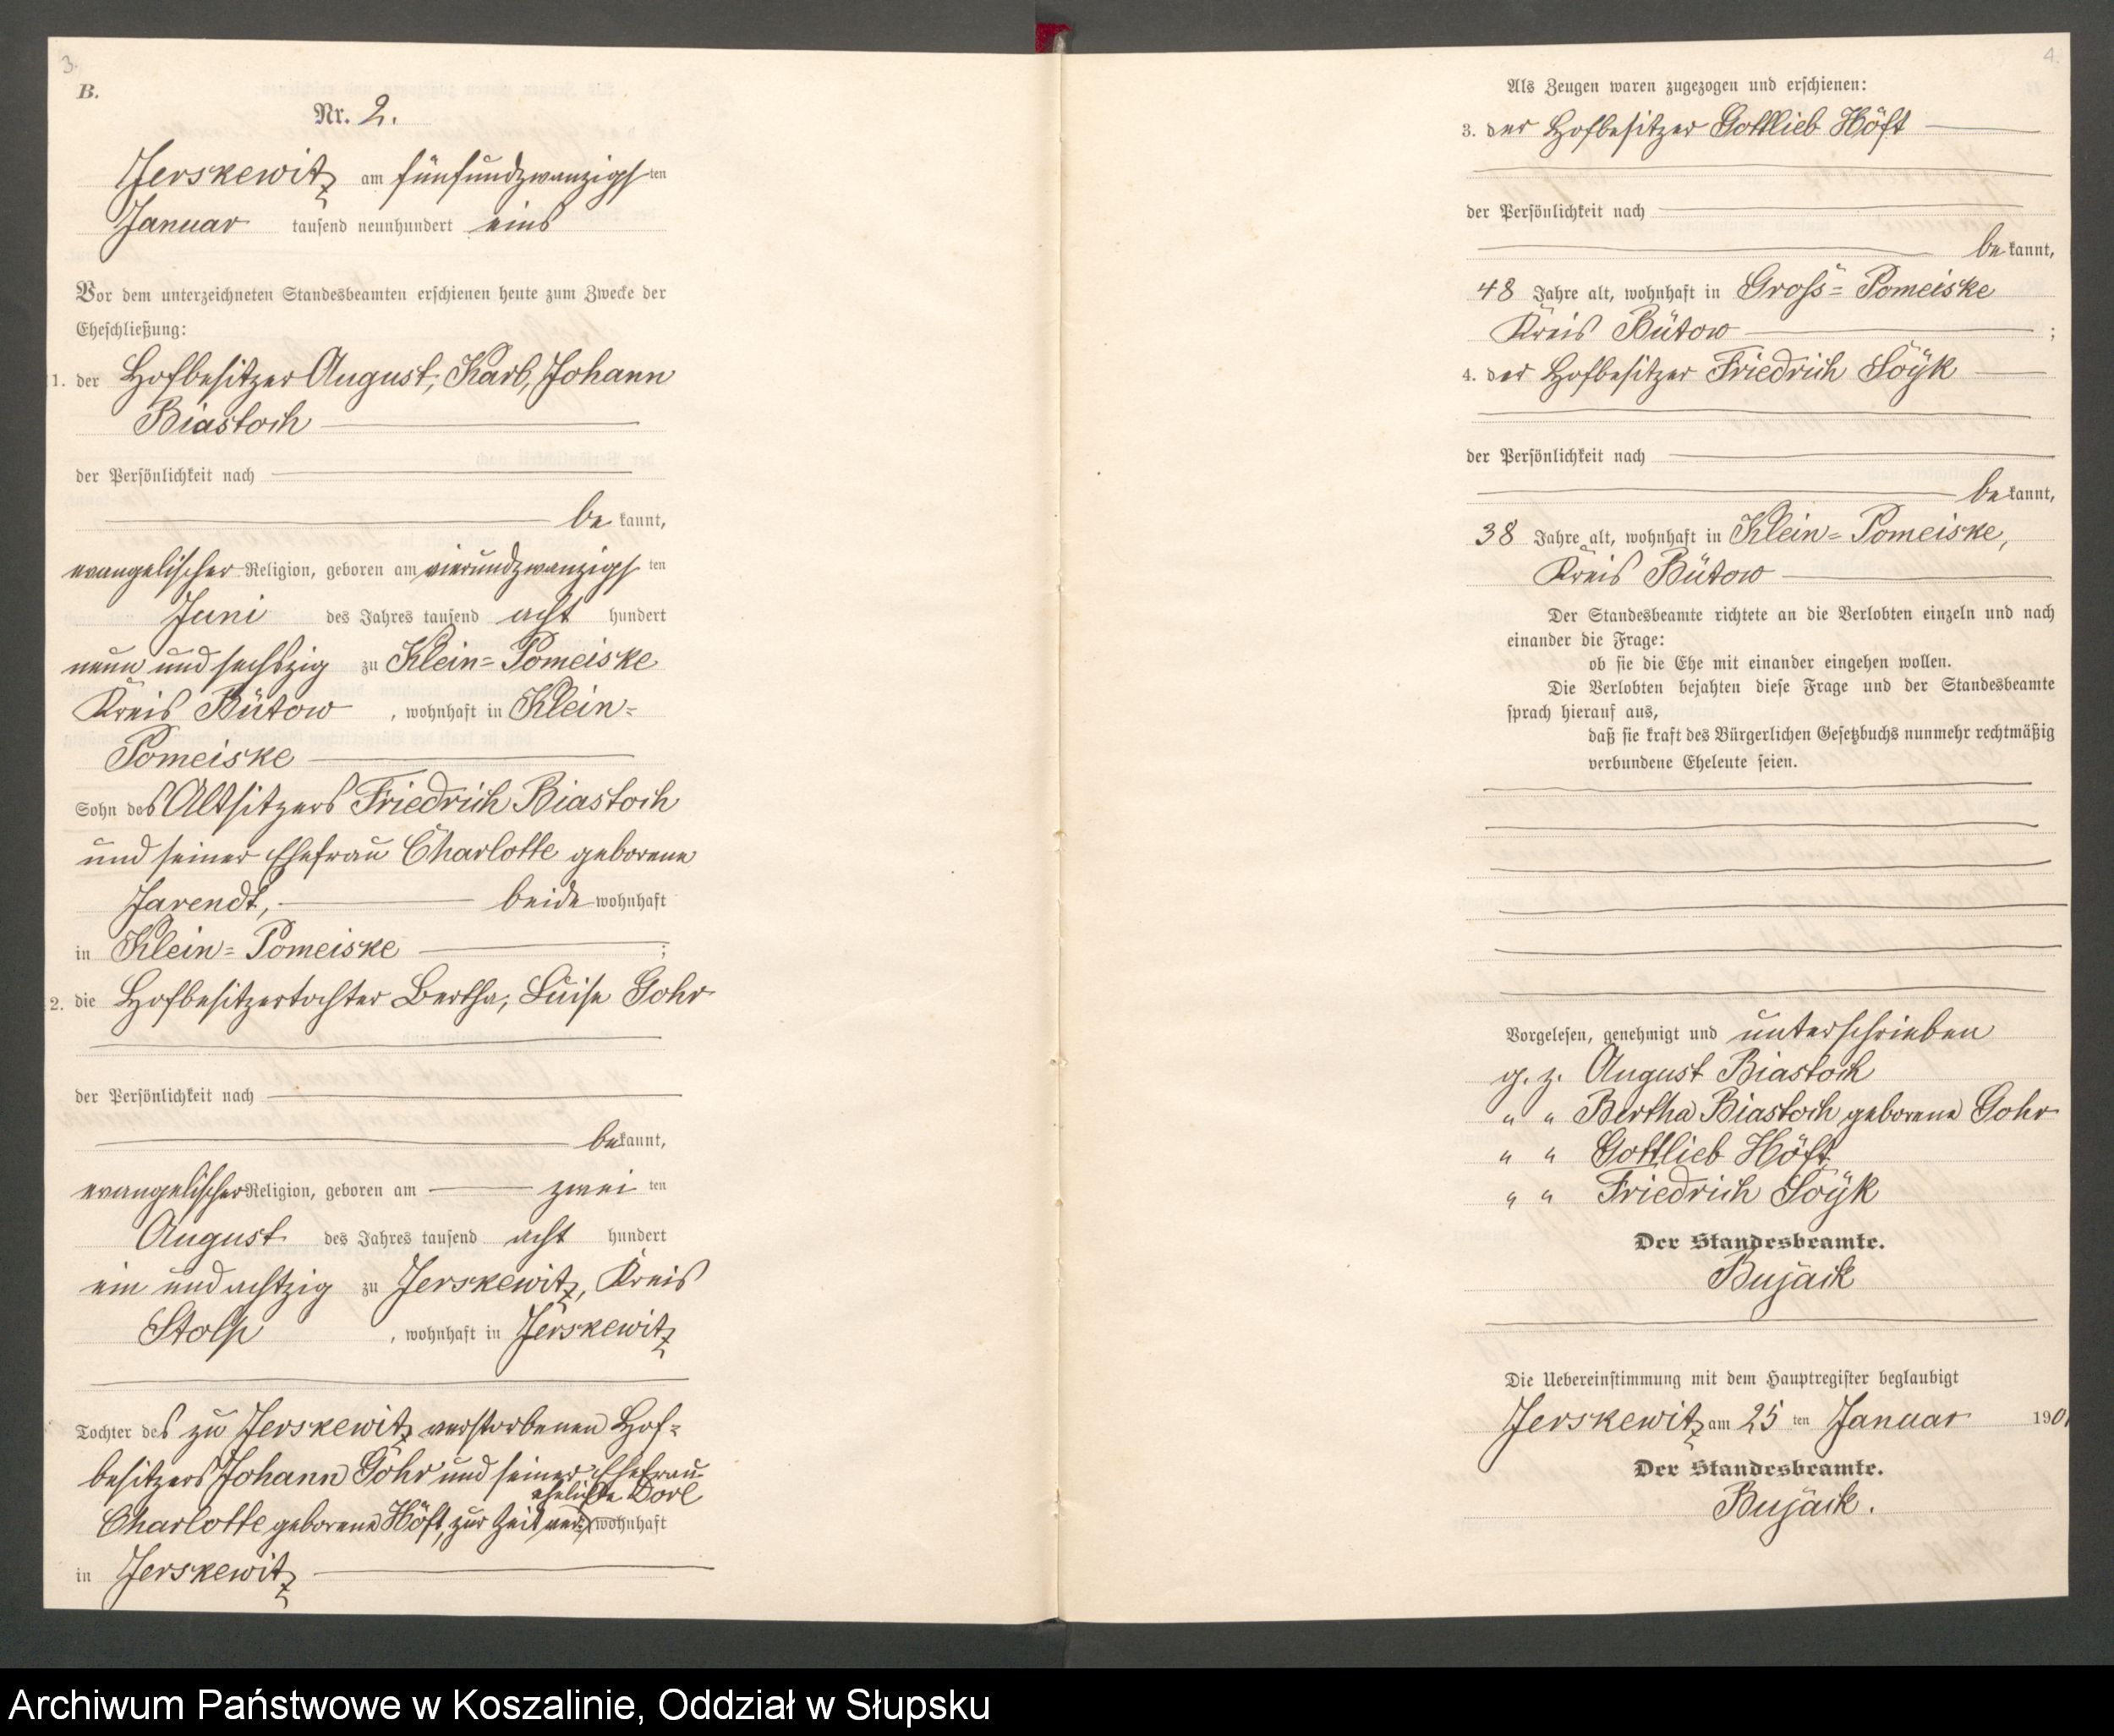 3.
B.
Nr. 2.
Jerskewitz am fünfundzwanzigsten
Januar tausend neunhundert eins
Vor dem unterzeichneten Standesbeamten erschienen heute zum Zwecke der
Eheschließung:
1. der Hofbesitzer August, Karl, Johann
Biastoch
der Persönlichkeit nach
be kannt,
evangelischer Religion, geboren am vierundzwanzigsten
Juni des Jahres tausend acht hundert
neun und sechszig zu Klein-Pomeiske
Kreis Bütow, wohnhaft in Klein-
Pomeiske
Sohn des Altsitzers Friedrich Biastoch
und seiner Ehefrau Charlotte geborene
Jarendt, beide wohnhaft
in Klein-Pomeiske ;
2. die Hofbesitzertochter Bertha, Luise Gohr
der Persönlichkeit nach
be kannt,
evangelischer Religion, geboren am zwei ten
August des Jahres tausend acht hundert
ein und achtzig zu Jerskewitz, Kreis
Stolp, wohnhaft in Jerskewitz
Tochter des zu Jerskewitz verstorbenen Hof-
besitzers Johann Gohr und seiner Ehefrau
ehelichte Dorl
Charlotte geborene Höft, zur Zeit ver- wohnhaft
in Jerskewitz
4.
Als Zeugen waren zugezogen und erschienen:
3. der Hofbesitzer Gottlieb Höft
der Persönlichkeit nach
be kannt,
48 Jahre alt, wohnhaft in Gross-Pomeiske
Kreis Bütow ;
4. der Hofbesitzer Friedrich Söyk
der Persönlichkeit nach
be kannt,
38 Jahre alt, wohnhaft in Klein-Pomeiske,
Kreis Bütow
Der Standesbeamte richtete an die Verlobten einzeln und nach
einander die Frage:
ob sie die Ehe mit einander eingehen wollen.
Die Verlobten bejahten diese Frage und der Standesbeamte
sprach hierauf aus,
daß sie kraft des Bürgerlichen Gesetzbuchs nunmehr rechtmäßig
verbundene Eheleute seien.
Vorgelesen, genehmigt und unterschrieben
g. z. August Biastoch
" " Bertha Biastoch geborene Gohr
" " Gottlieb Höft
" " Friedrich Söyk
Der Standesbeamte.
Bujack
Die Uebereinstimmung mit dem Hauptregister beglaubigt
Jerskewitz am 25 ten Januar 1901
Der Standesbeamte.
Bujack.
Archiwum Państwowe w Koszalinie, Oddział w Słupsku